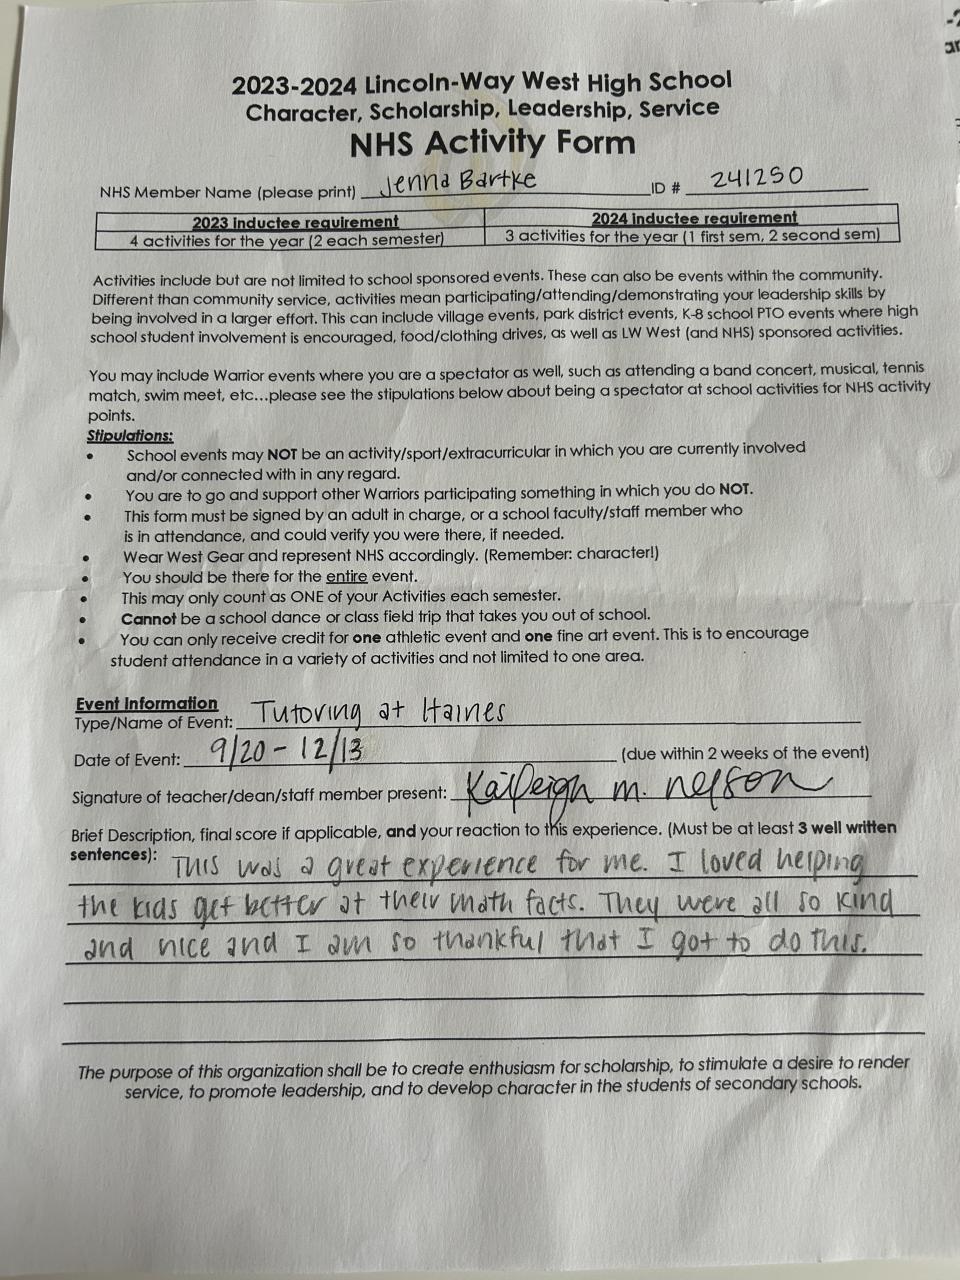 2023-2024 Lincoln-Way West High School
Character, Scholarship, Leadership, Service
NHS Activity Form
NHS Member Name (please print) Jenna Bartke ID # 241250
2023 inductee requirement 2024 inductee requirement
4 activities for the year (2 each semester) 3 activities for the year (1 first sem, 2 second sem)
Activities include but are not limited to school sponsored events. These can also be events within the community.
Different than community service, activities mean participating/attending/demonstrating your leadership skills by
being involved in a larger effort. This can include village events, park district events, K-8 school PTO events where high
school student involvement is encouraged, food/clothing drives, as well as LW West (and NHS) sponsored activities.
You may include Warrior events where you are a spectator as well, such as attending a band concert, musical, tennis
match, swim meet, etc...please see the stipulations below about being a spectator at school activities for NHS activity
points.
Stipulations:
• School events may NOT be an activity/sport/extracurricular in which you are currently involved
and/or connected with in any regard.
• You are to go and support other Warriors participating something in which you do NOT.
• This form must be signed by an adult in charge, or a school faculty/staff member who
is in attendance, and could verify you were there, if needed.
• Wear West Gear and represent NHS accordingly. (Remember: character!)
• You should be there for the entire event.
• This may only count as ONE of your Activities each semester.
• Cannot be a school dance or class field trip that takes you out of school.
• You can only receive credit for one athletic event and one fine art event. This is to encourage
student attendance in a variety of activities and not limited to one area.
Event Information
Type/Name of Event: Tutoring at Haines
Date of Event: 9/20 - 12/13 (due within 2 weeks of the event)
Signature of teacher/dean/staff member present: Kaileigh M. Nelson
Brief Description, final score if applicable, and your reaction to this experience. (Must be at least 3 well written
sentences): This was a great experience for me. I loved helping
the kids get better at their math facts. They were all so kind
and nice and I am so thankful that I got to do this.
The purpose of this organization shall be to create enthusiasm for scholarship, to stimulate a desire to render
service, to promote leadership, and to develop character in the students of secondary schools.